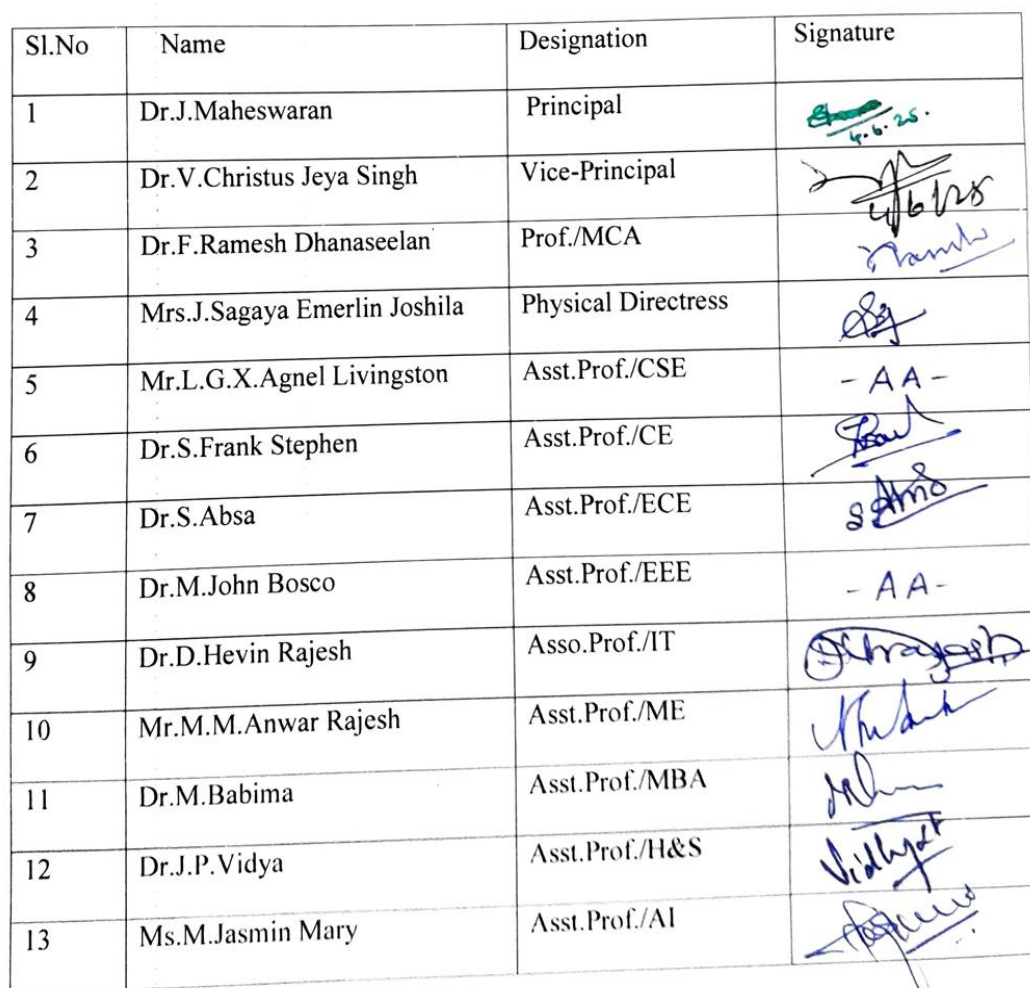 Sl.No Name Designation Signature
1 Dr.J.Maheswaran Principal 4.6.25.
2 Dr.V.Christus Jeya Singh Vice-Principal 4/6/25
3 Dr.F.Ramesh Dhanaseelan Prof./MCA
4 Mrs.J.Sagaya Emerlin Joshila Physical Directress
5 Mr.L.G.X.Agnel Livingston Asst.Prof./CSE - A A -
6 Dr.S.Frank Stephen Asst.Prof./CE
7 Dr.S.Absa Asst.Prof./ECE
8 Dr.M.John Bosco Asst.Prof./EEE - A A -
9 Dr.D.Hevin Rajesh Asso.Prof./IT
10 Mr.M.M.Anwar Rajesh Asst.Prof./ME
11 Dr.M.Babima Asst.Prof./MBA
12 Dr.J.P.Vidya Asst.Prof./H&S
13 Ms.M.Jasmin Mary Asst.Prof./AI